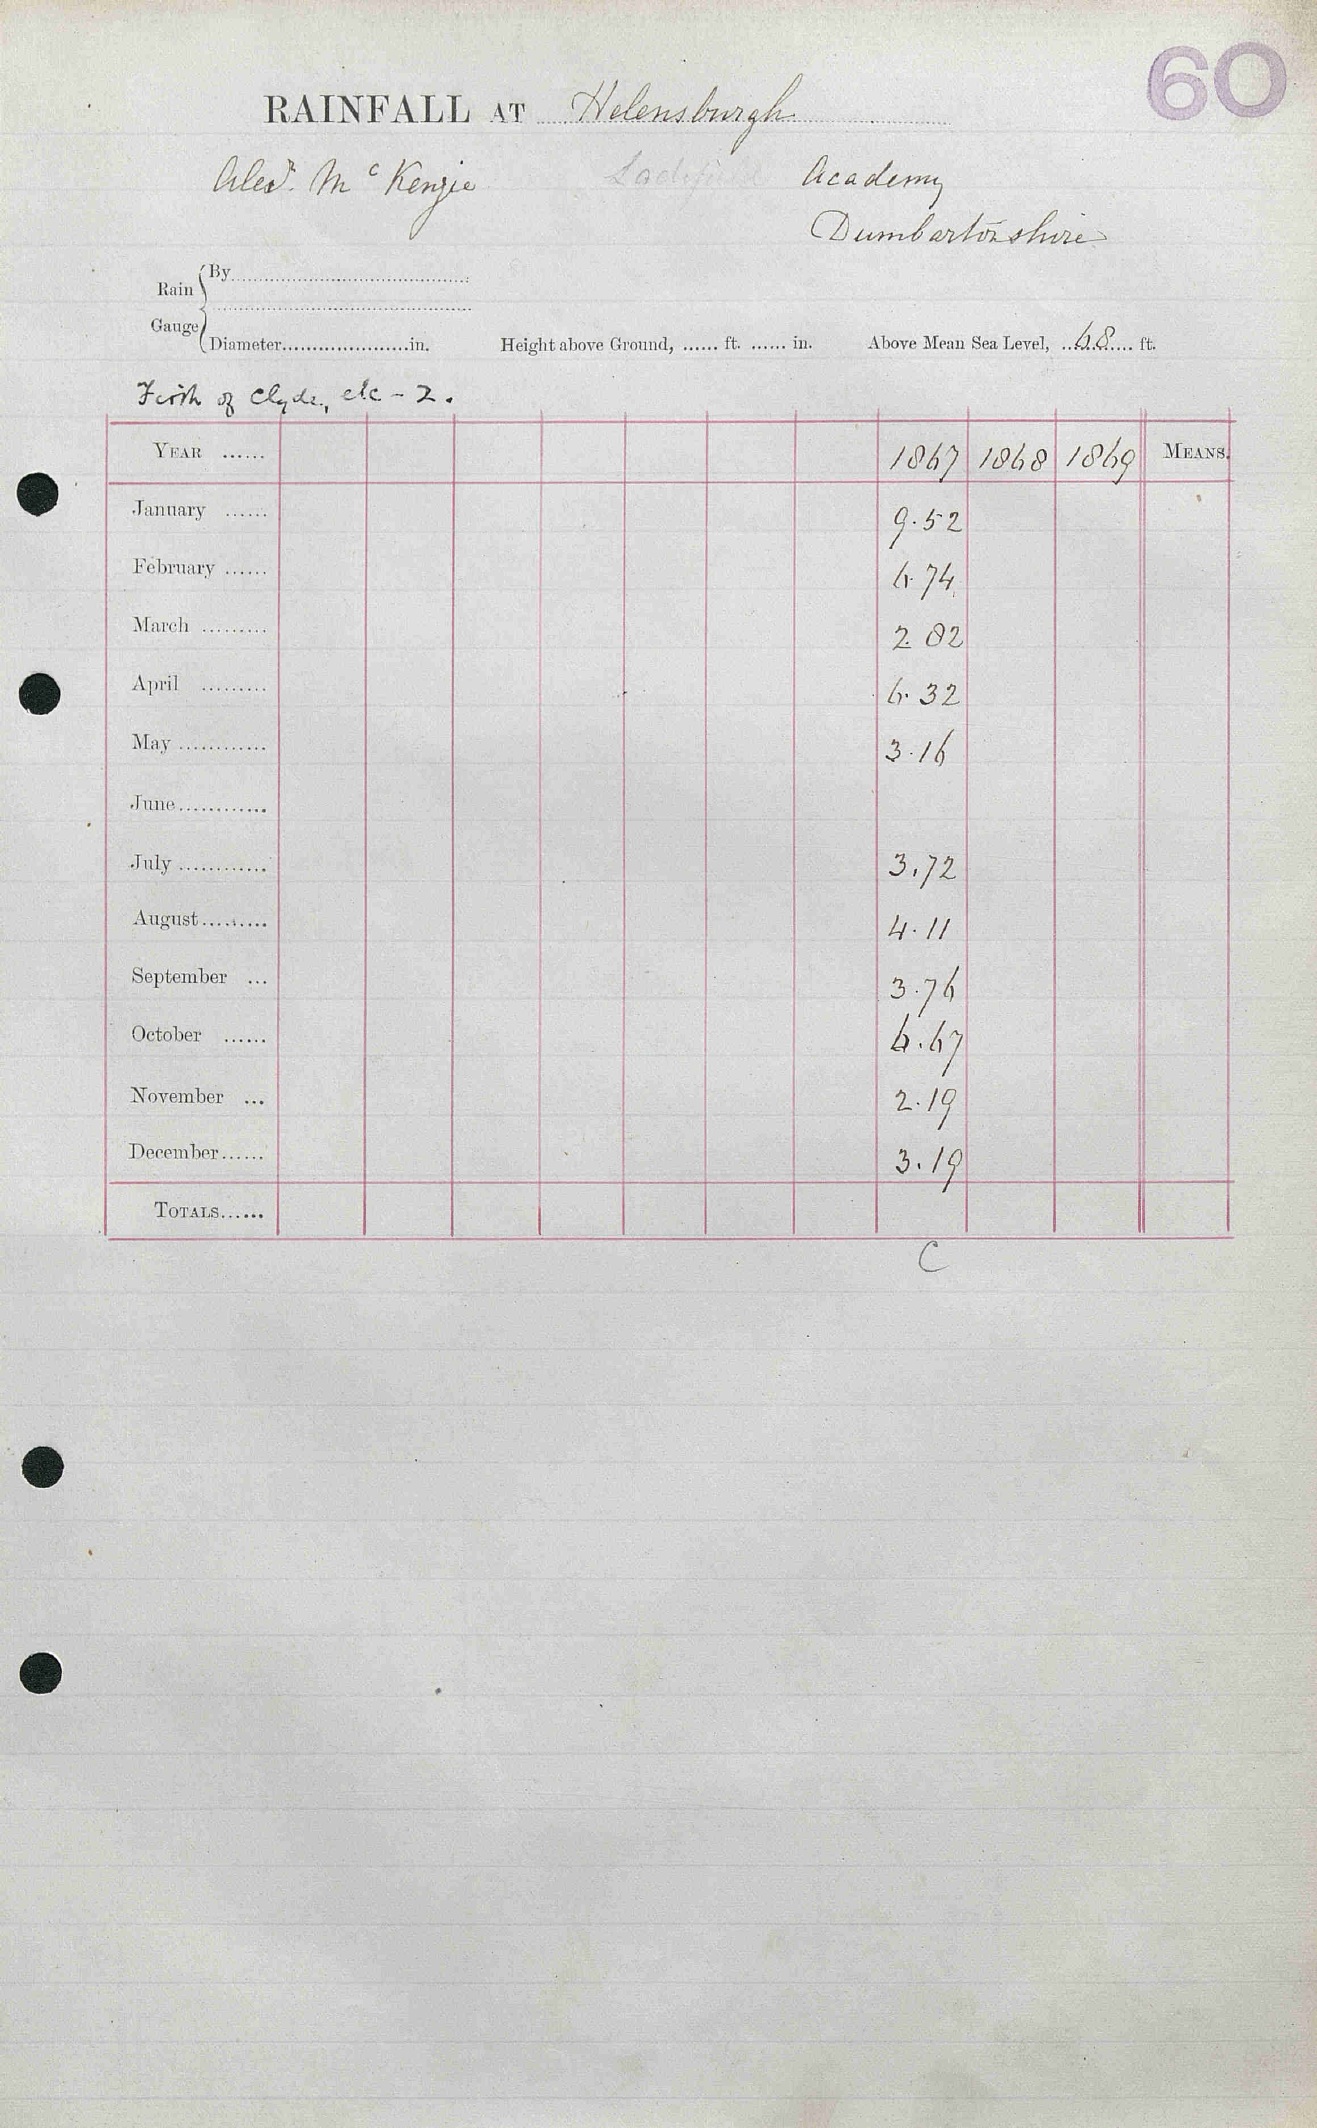 60
RAINFALL AT Helensburgh
Alexr. McKenzie Academy
Dumbartonshire
Rain Gauge
By
Diameter in. Height above Ground, ...... ft. ...... in. Above Mean Sea Level, 68 ft.
Firth of Clyde, etc - 2.
YEAR ...... 1867 1868 1869 MEANS.
January ...... 9.52
February ...... 6.74
March ......... 2.82
April ......... 6.32
May ............ 3.16
June ............
July ............ 3.72
August ......... 4.11
September ... 3.76
October ...... 6.67
November ... 2.19
December ...... 3.19
TOTALS ......
C